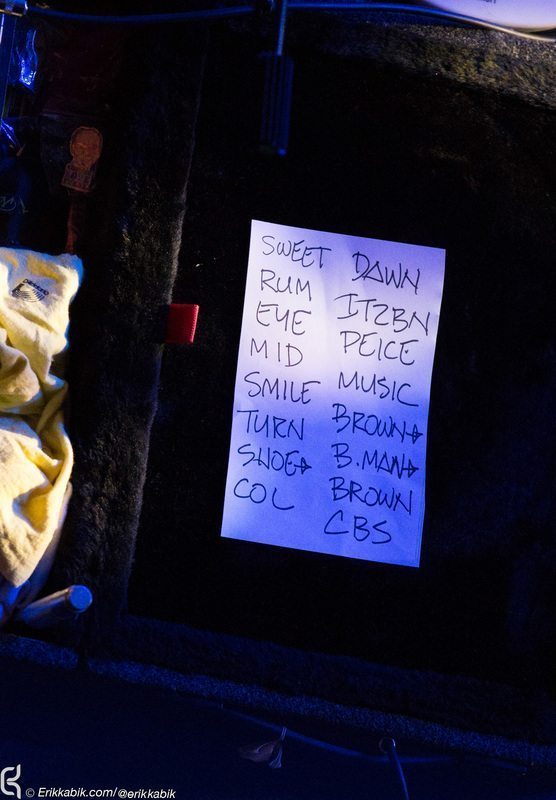 SWEET
RUM
EYE
MID
SMILE
TURN
SHOE→
COL
DAWN
ITZBN
PEICE
MUSIC
BROWN→
B.MAN→
BROWN
CBS
© Erikkabik.com/@erikkabik